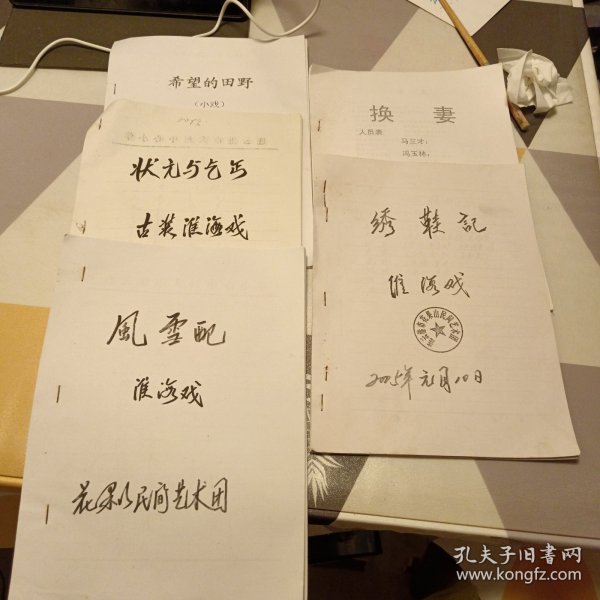 希望的田野
（小戏）
状元与乞丐
古装淮海戏
風雪配
淮海戏
花果山民间艺术团
换妻
人员表
马三才：
冯玉林：
绣鞋記
淮海戏
2005年元月10日
孔夫子旧书网
www.kongfz.com